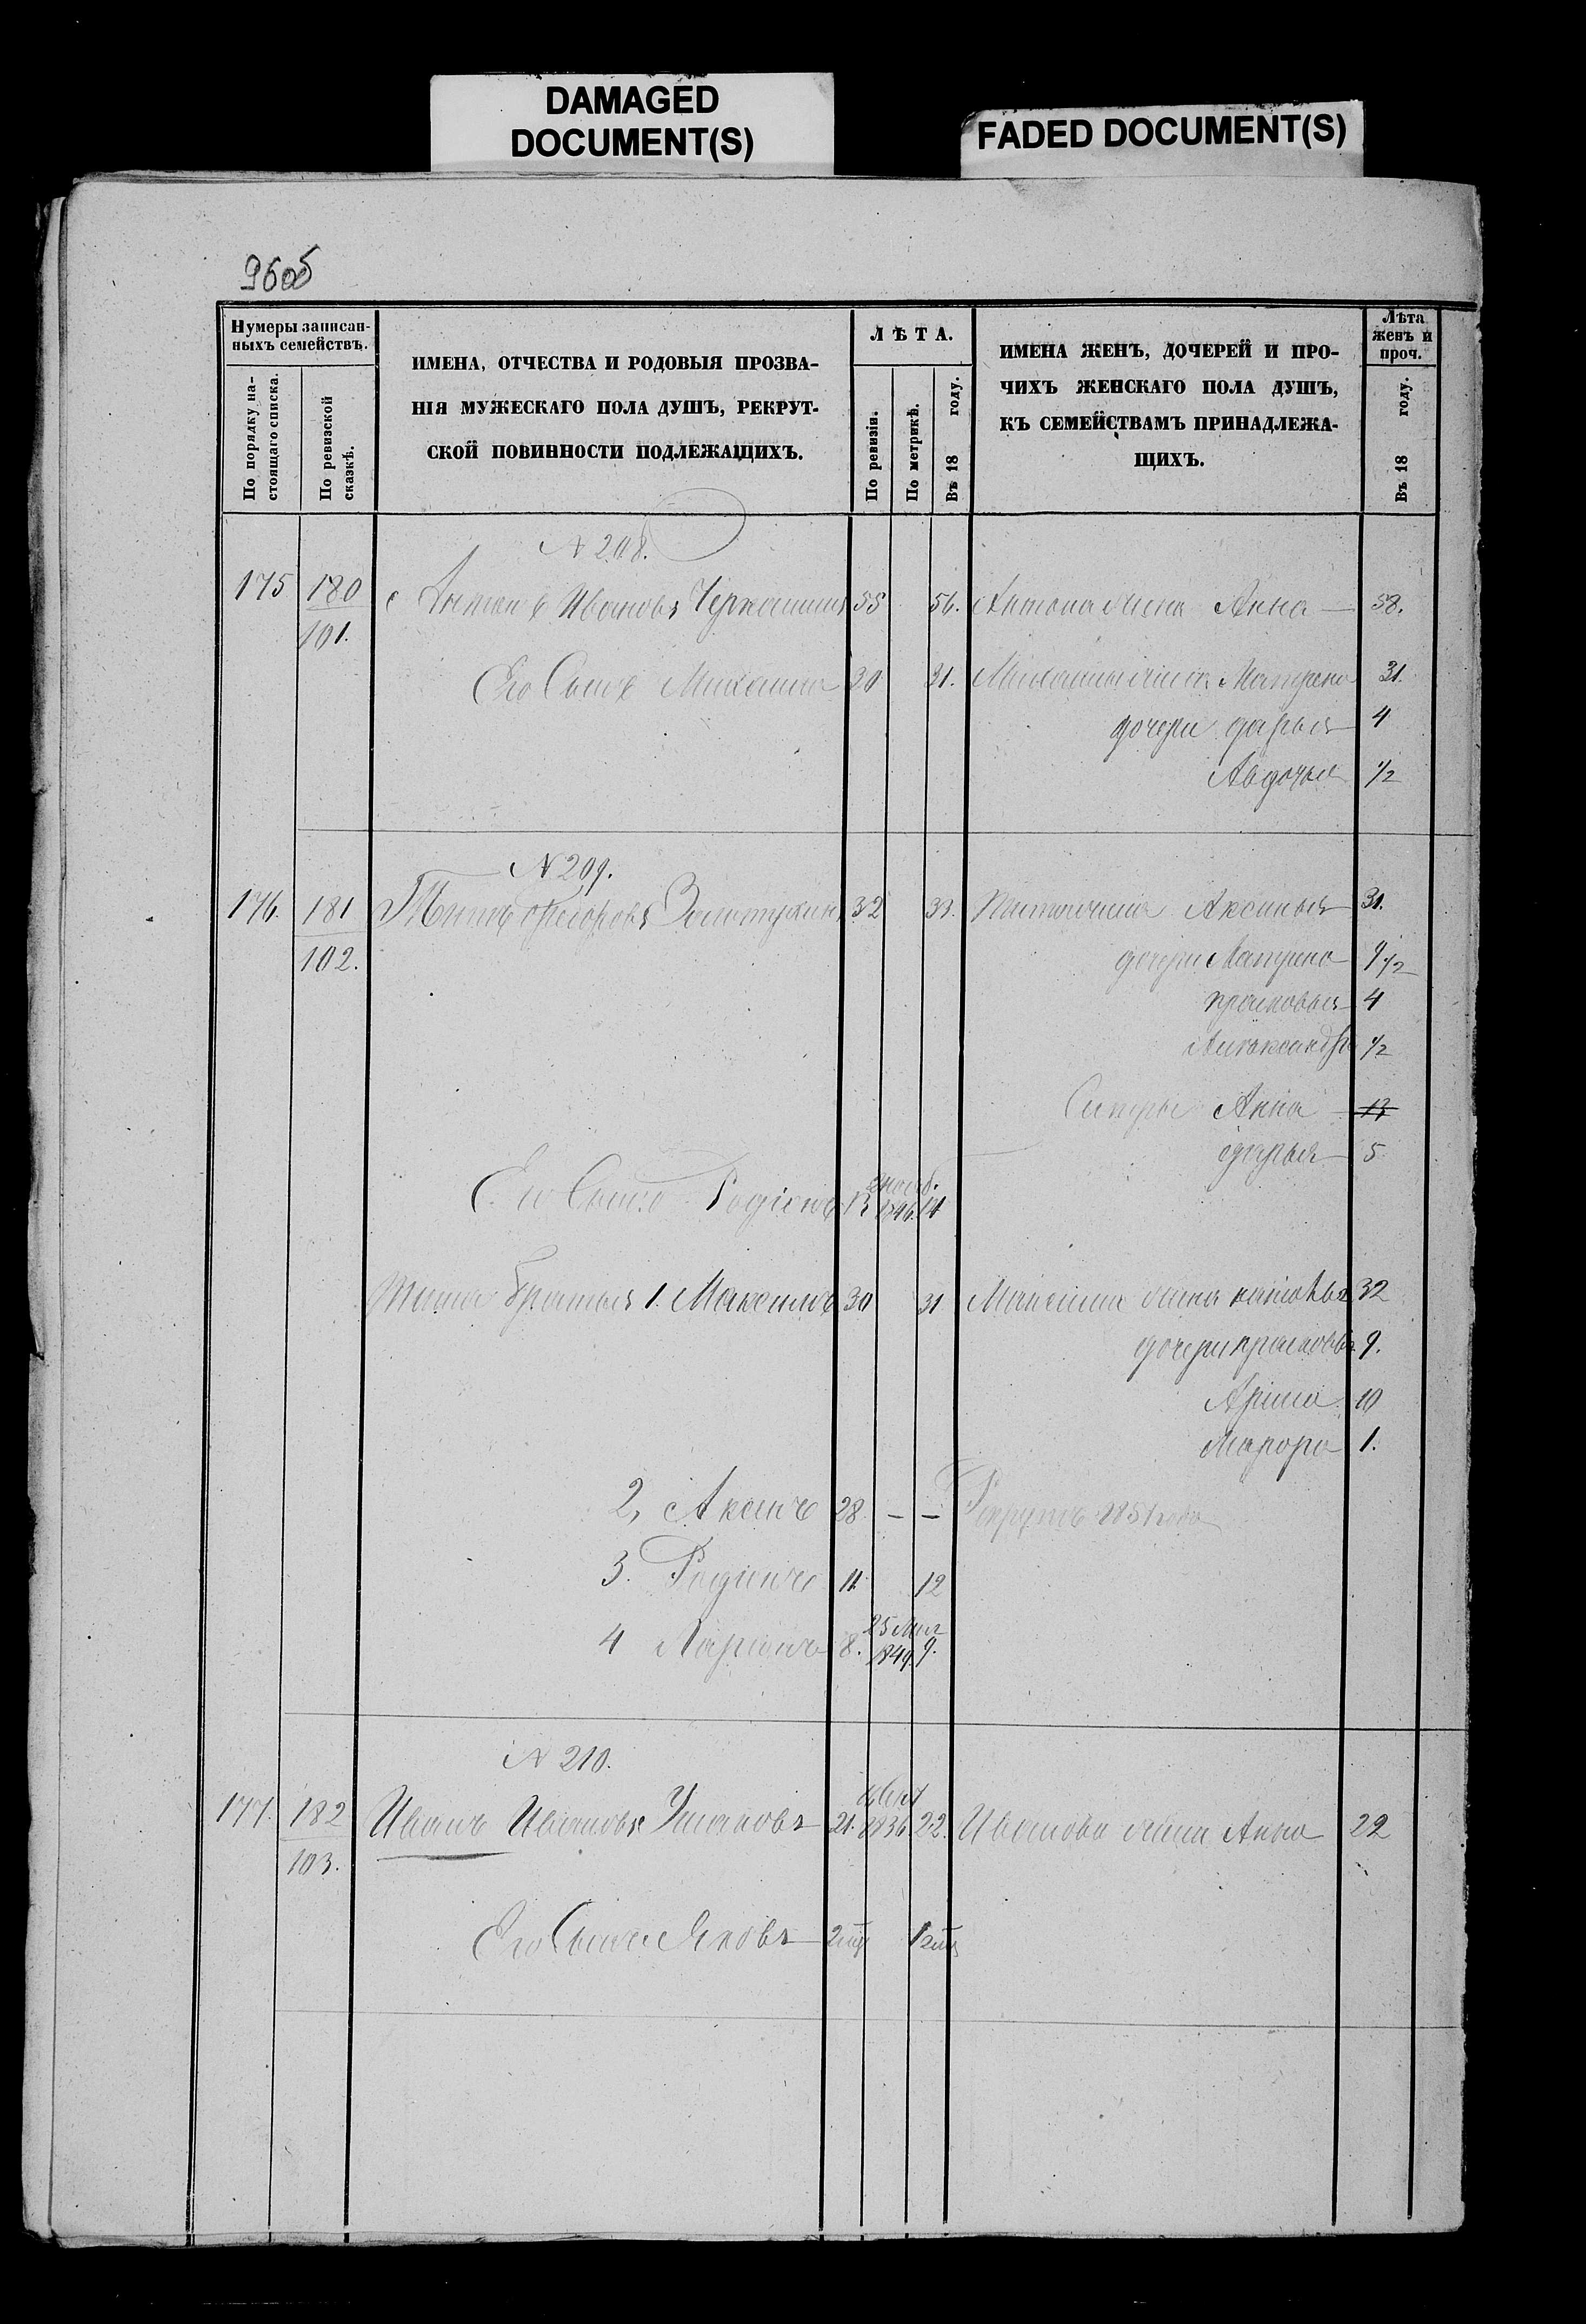 DAMAGED
DOCUMENT(S)
FADED DOCUMENT(S)
96об
Нумеры записан-
ныхъ семействъ.
По порядку на-
стоящаго списка.
По ревизской
сказкѣ.
ИМЕНА, ОТЧЕСТВА И РОДОВЫЯ ПРОЗВА-
НІЯ МУЖЕСКАГО ПОЛА ДУШЪ, РЕКРУТ-
СКОЙ ПОВИННОСТИ ПОДЛЕЖАЩИХЪ.
ЛѢТА.
По ревизіи.
По метрикѣ.
Въ 18 году.
ИМЕНА ЖЕНЪ, ДОЧЕРЕЙ И ПРО-
ЧИХЪ ЖЕНСКАГО ПОЛА ДУШЪ,
КЪ СЕМЕЙСТВАМЪ ПРИНАДЛЕЖА-
ЩИХЪ.
Лѣта
женъ и
проч.
Въ 18 году.
N 208.
175 180 Антонъ Ивановъ Черкашинъ 55 56. Антона жена Анна 58.
101.
Его Сынъ Михаила 30 31. Михаилы жена Матрена 31.
дочери дарья 4
Авдотья 1/2
N 209.
176. 181 Титъ Федоровъ Золотухинъ 32 33. Тита жена Аксинья 31.
102.
дочери Матрена 9 1/2
прасковья 4
Александра 1/2
Сестры Анна 13
дарья 5
Его Сынъ Родіонъ 13 1846 14
Тита братья 1. Максимъ 30 31 Максима жена 32
дочери прасковья 9.
Арина 10
1.
2, 28 – – Рекрутъ 1851 года
3. Родіонъ 11 12
4 Ларіонъ 8. 25 Мая 9.
1849
N 210.
177. 182 Иванъ Ивановъ Ушаковъ 21. 1836 22. Иванова жена Анна 22
103.
Его Сынъ Яковъ